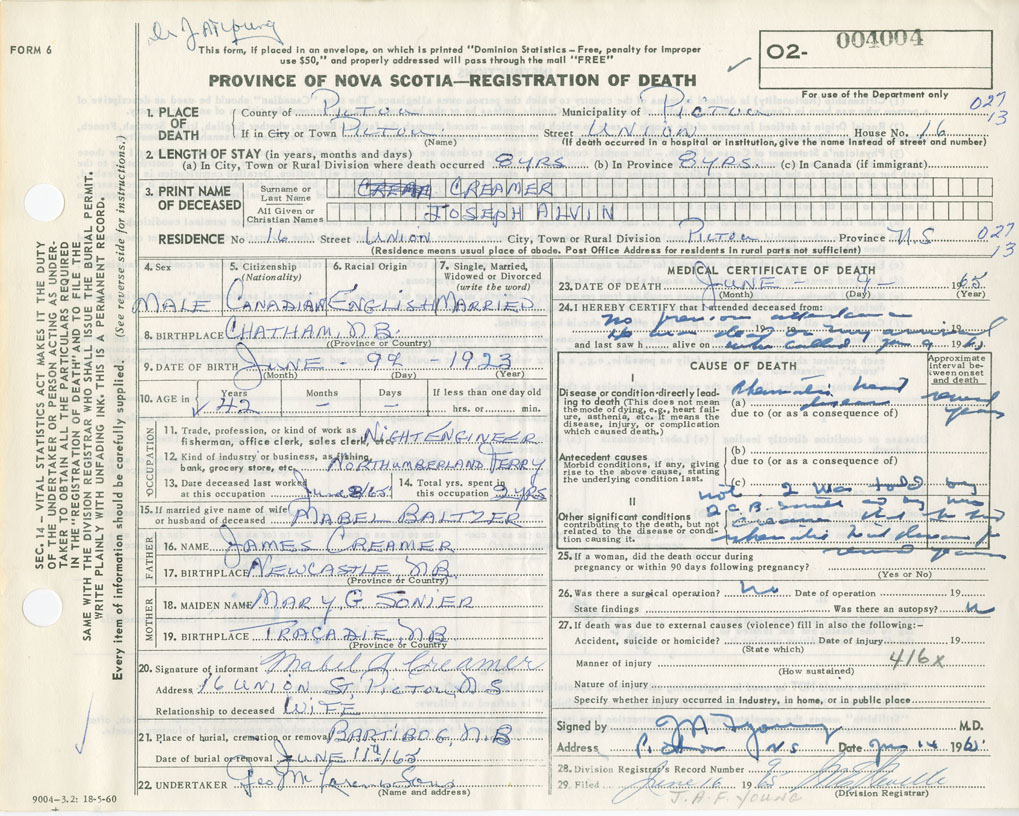 Dr J A F Young
FORM 6
This form, if placed in an envelope, on which is printed "Dominion Statistics – Free, penalty for improper
use $50," and properly addressed will pass through the mail "FREE"
O2- 004004
PROVINCE OF NOVA SCOTIA—REGISTRATION OF DEATH
For use of the Department only
1. PLACE OF DEATH
County of PICTOU Municipality of PICTOU 027
If in City or Town PICTOU Street UNION House No. 16 13
(Name) (If death occurred in a hospital or institution, give the name instead of street and number)
2. LENGTH OF STAY (in years, months and days)
(a) In City, Town or Rural Division where death occurred 8 YRS (b) In Province 8 YRS (c) In Canada (if immigrant)
3. PRINT NAME OF DECEASED
Surname or Last Name CREAMER
All Given or Christian Names JOSEPH ALVIN
RESIDENCE No 16 Street UNION City, Town or Rural Division PICTOU Province N S 027
(Residence means usual place of abode. Post Office Address for residents in rural parts not sufficient) 13
4. Sex MALE
5. Citizenship (Nationality) CANADIAN
6. Racial Origin ENGLISH
7. Single, Married, Widowed or Divorced (write the word) MARRIED
8. BIRTHPLACE CHATHAM, N.B.
(Province or Country)
9. DATE OF BIRTH JUNE - 9th - 1923
(Month) (Day) (Year)
10. AGE in Years 42 Months – Days – If less than one day old hrs. or min.
OCCUPATION
11. Trade, profession, or kind of work as fisherman, office clerk, sales clerk, etc. NIGHT ENGINEER
12. Kind of industry or business, as fishing, bank, grocery store, etc. NORTHUMBERLAND FERRY
13. Date deceased last worked at this occupation June 8/65
14. Total yrs. spent in this occupation 3 YRS
15. If married give name of wife or husband of deceased MABEL BALTZER
FATHER
16. NAME JAMES CREAMER
17. BIRTHPLACE NEWCASTLE N.B
(Province or Country)
MOTHER
18. MAIDEN NAME MARY G SONIER
19. BIRTHPLACE TRACADIE, N B
(Province or Country)
20. Signature of informant Mabel J Creamer
Address 16 UNION ST, PICTOU N S
Relationship to deceased WIFE
21. Place of burial, cremation or removal BARTIBOG, N.B
Date of burial or removal JUNE 11th/65
22. UNDERTAKER Geo M
(Name and address)
9004—3.2: 18-5-60
SEC. 14 – VITAL STATISTICS ACT MAKES IT THE DUTY
OF THE UNDERTAKER OR PERSON ACTING AS UNDER-
TAKER TO OBTAIN ALL THE PARTICULARS REQUIRED
IN THE "REGISTRATION OF DEATH" AND TO FILE THE
SAME WITH THE DIVISION REGISTRAR WHO SHALL ISSUE THE BURIAL PERMIT.
WRITE PLAINLY WITH UNFADING INK. THIS IS A PERMANENT RECORD.
Every item of information should be carefully supplied. (See reverse side for instructions.)
MEDICAL CERTIFICATE OF DEATH
23. DATE OF DEATH JUNE - 9 - 1965
(Month) (Day) (Year)
24. I HEREBY CERTIFY that I attended deceased from:
no previous attendance
19 19
He was dead on my arrival
and last saw h alive on when called June 9 1965
CAUSE OF DEATH
Approximate interval between onset and death
I
Disease or condition directly leading to death (This does not mean the mode of dying, e.g., heart failure, asthenia, etc. It means the disease, injury, or complication which caused death.)
(a) Rheumatic heart disease several years
due to (or as a consequence of)
Antecedent causes
Morbid conditions, if any, giving rise to the above cause, stating the underlying condition last.
(b)
due to (or as a consequence of)
(c)
II
Other significant conditions
contributing to the death, but not related to the disease or condition causing it.
not. I was told by
and by Mrs
Creamer that he had
rheumatic heart disease for
several years
25. If a woman, did the death occur during pregnancy or within 90 days following pregnancy?
(Yes or No)
26. Was there a surgical operation? No Date of operation 19
State findings Was there an autopsy? N
27. If death was due to external causes (violence) fill in also the following:–
Accident, suicide or homicide? Date of injury 19
(State which)
Manner of injury 416x
(How sustained)
Nature of injury
Specify whether injury occurred in industry, in home, or in public place
Signed by J A F Young M.D.
Address Pictou N S Date June 14 1965
28. Division Registrar's Record Number 98
29. Filed June 16 1965
(Division Registrar)
J. A. F. YOUNG